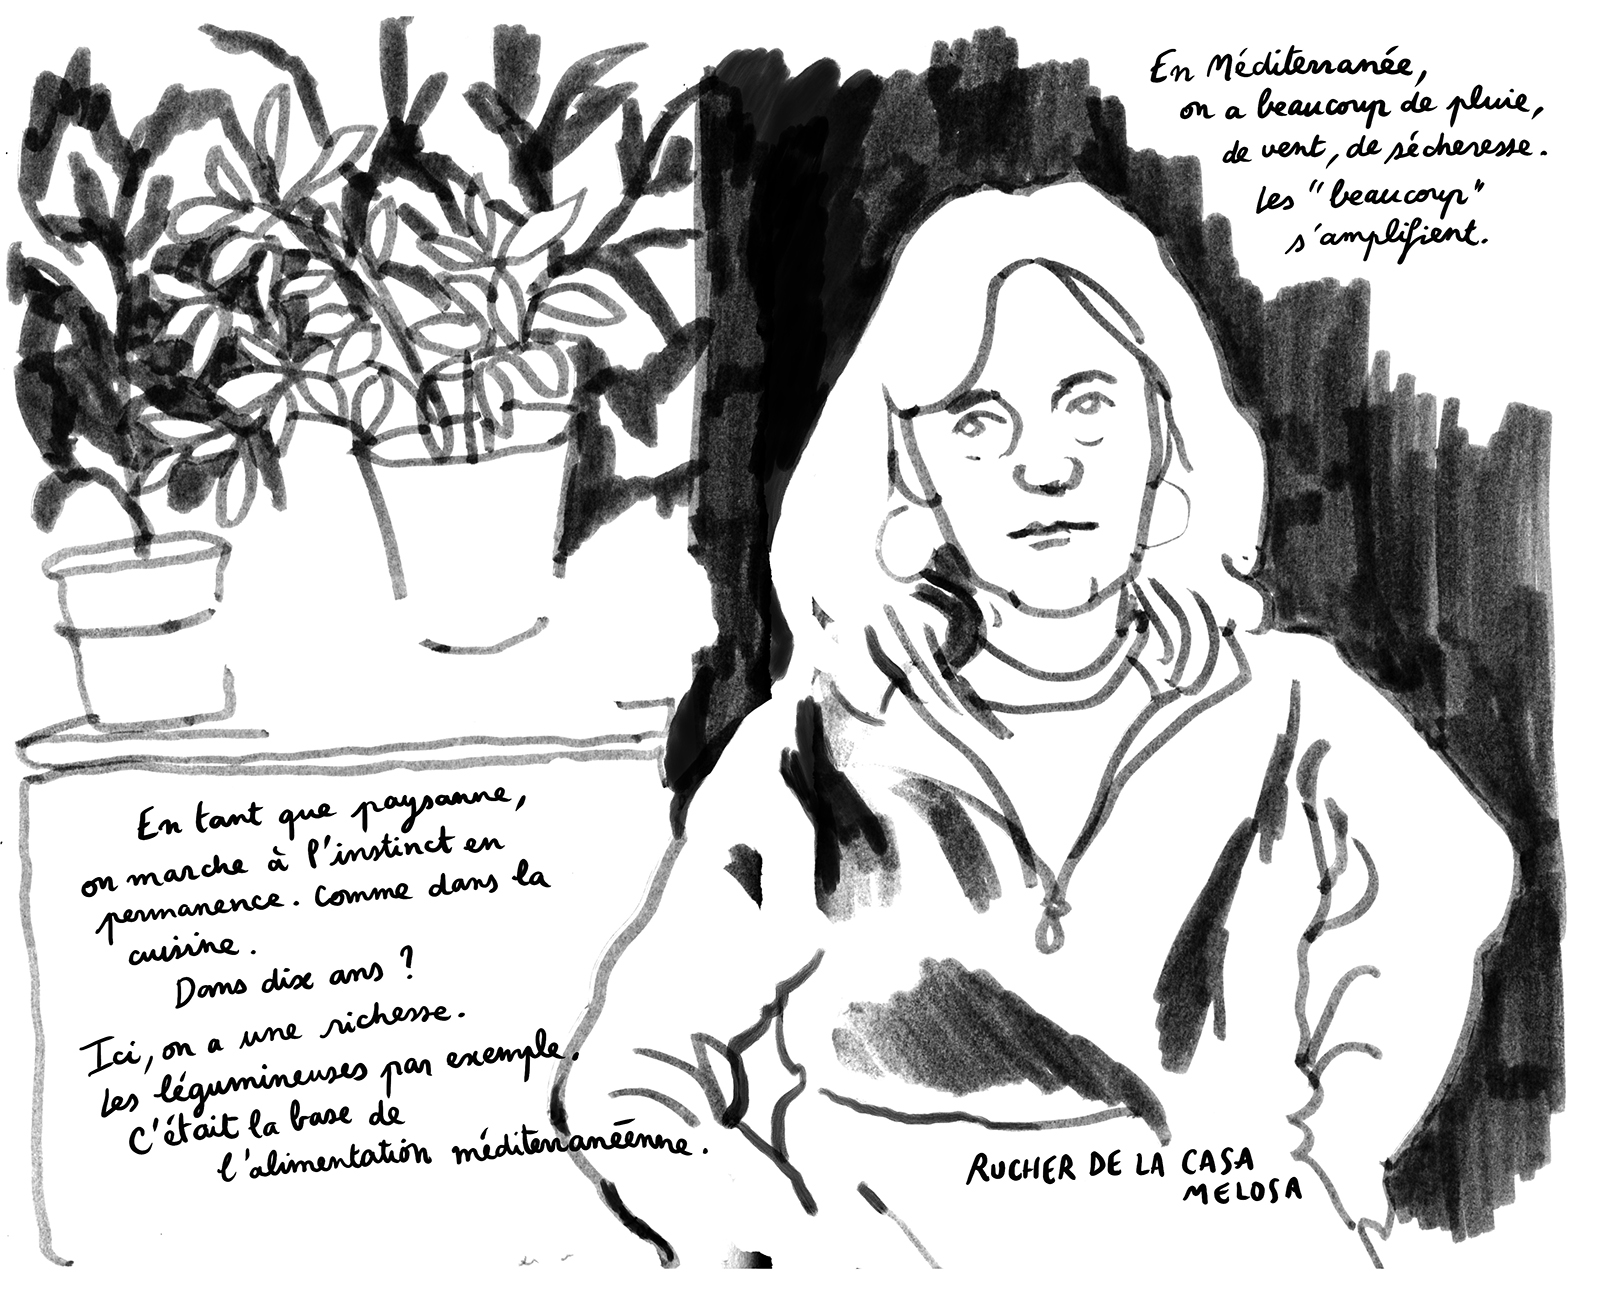 En Méditerranée,
on a beaucoup de pluie,
de vent, de sécheresse.
Les "beaucoup"
s'amplifient.
En tant que paysanne,
on marche à l'instinct en
permanence. Comme dans la
cuisine.
Dans dix ans ?
Ici, on a une richesse.
Les légumineuses par exemple.
C'était la base de
l'alimentation méditerranéenne.
RUCHER DE LA CASA
MELOSA